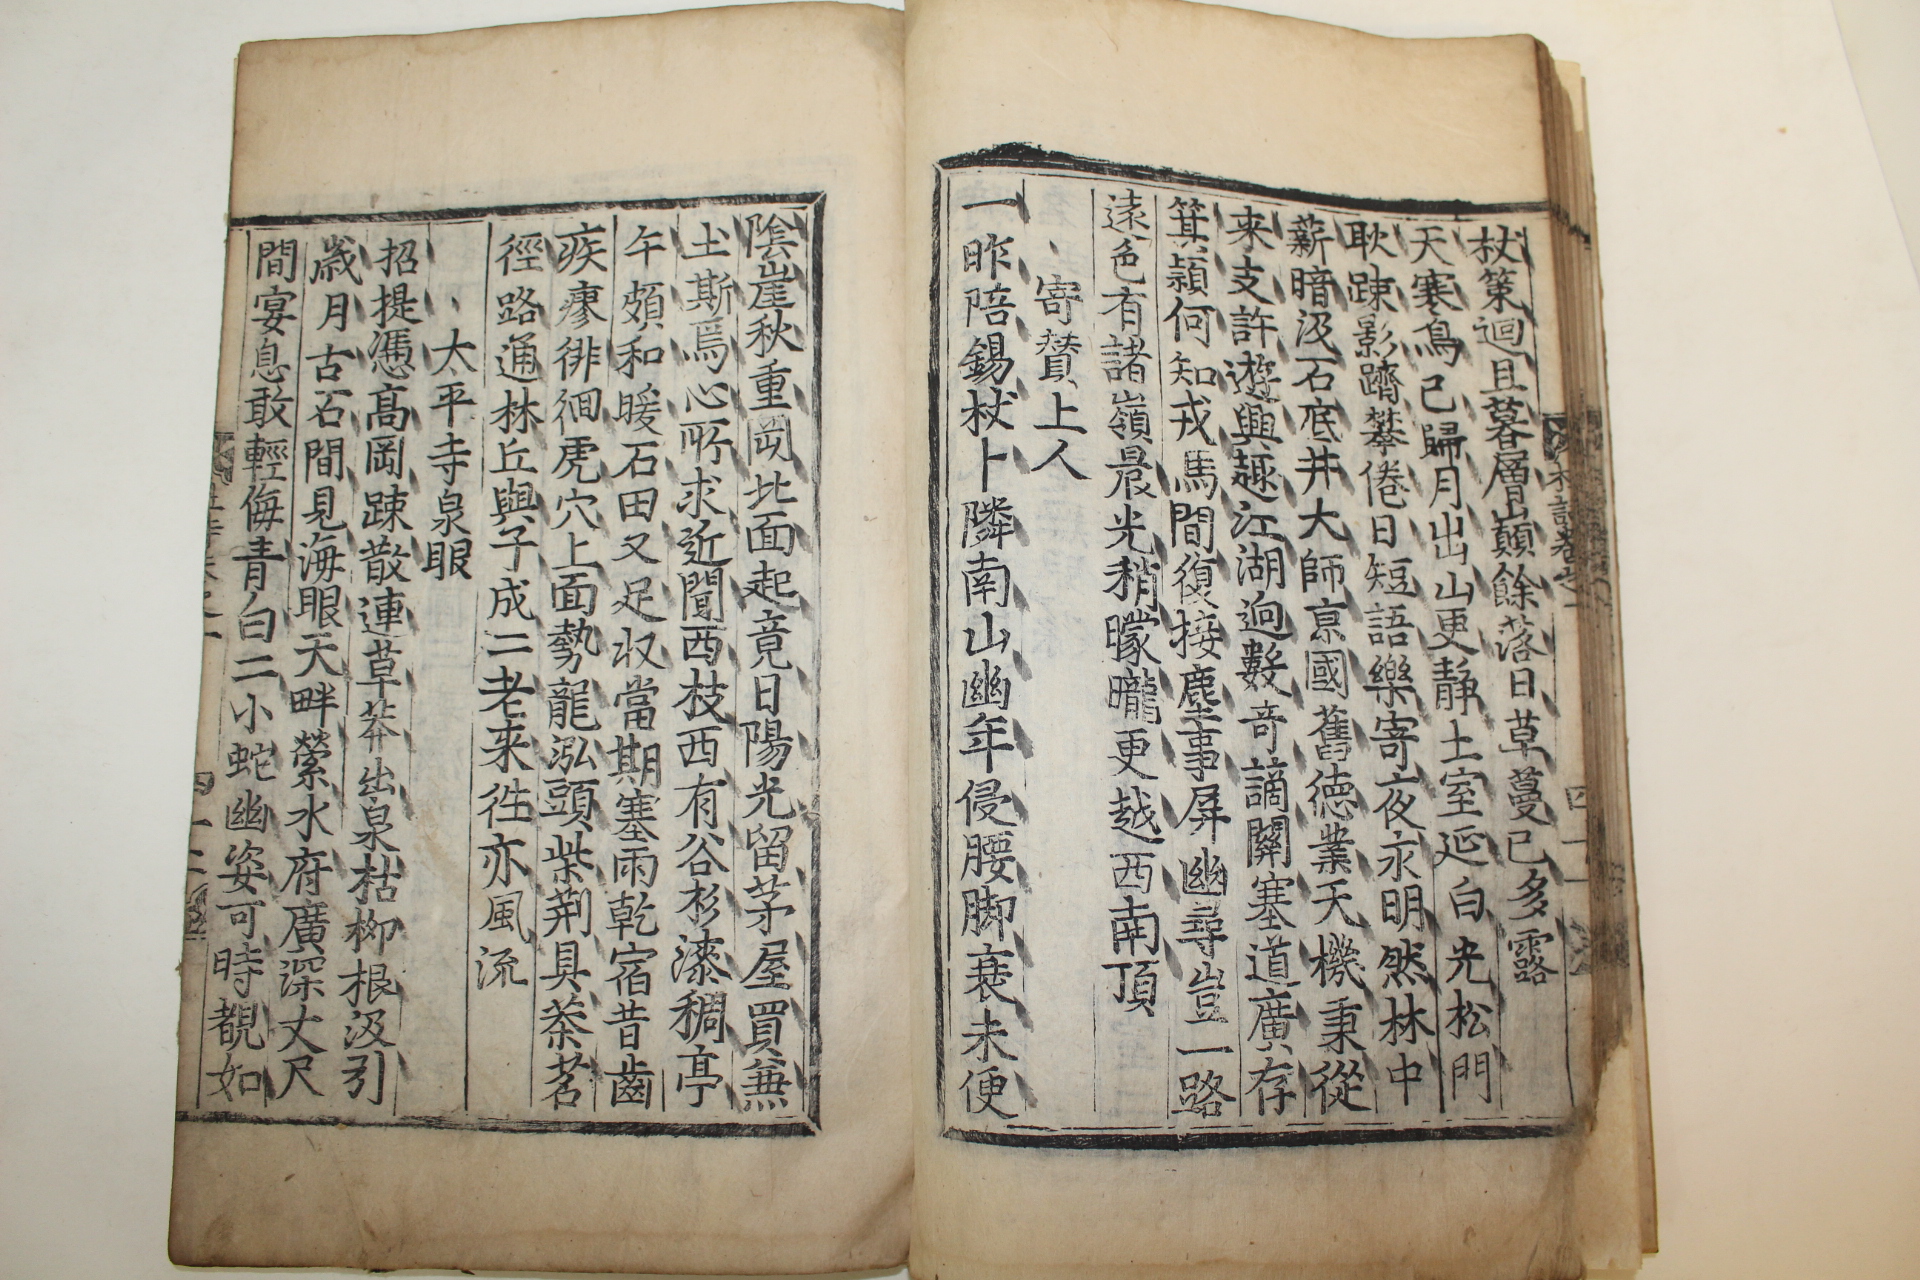 杖策迴且暮層巓餘落日草蔓已多露
天寒鳥已歸月出山更靜土室延白光松門
耿踈影躋攀倦日短語樂寄夜永明然林中
薪暗汲石底井大師京國舊德業天機秉從
来支許遊興趣江湖迥數竒謫關塞道廣存
箕潁何知戎馬間復接塵事屏幽尋豈一路
遠色有諸嶺晨光稍朦曨更越西南頂
寄賛上人
一昨陪錫杖卜隣南山幽年侵腰脚衰未便
陰崖秋重岡北面起竟日陽光留茅屋買兼
土斯焉心所求近聞西枝西有谷杉漆稠亭
午頗和暖石田又足収當期塞雨乾宿昔齒
疾瘳徘徊虎穴上面勢龍泓頭柴荆具茶茗
徑路通林丘與子成二老来徃亦風流
太平寺泉眼
招提憑髙岡踈散連草莽出泉枯栁根汲引
歲月古石間見海眼天畔縈水府廣深丈尺
間宴息敢輕侮青白二小蛇幽姿可時覩如